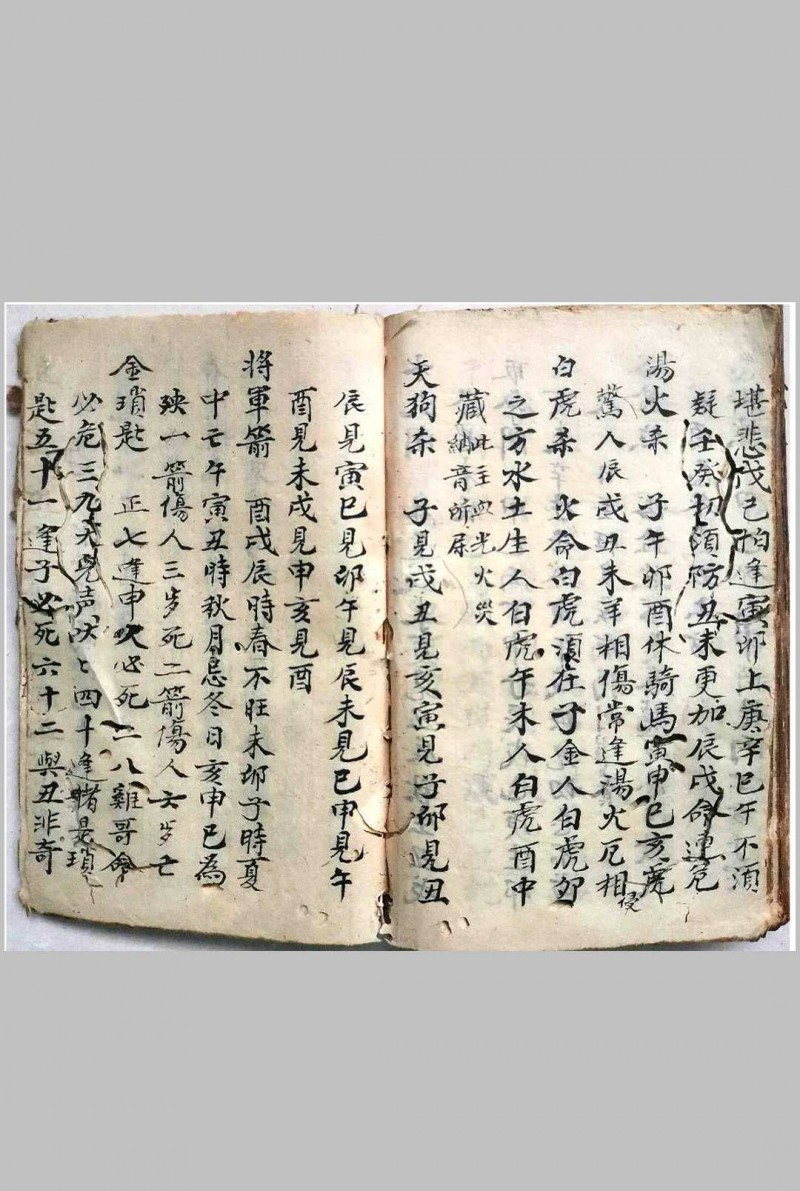 堪悲戊己怕逢寅卯上庚辛巳午不須
疑壬癸切須防丑未更加辰戌命連危
湯火杀　子午卯酉休騎馬寅申巳亥虎
驚人辰戌丑未羊相傷常逢湯火厄相侵
白虎杀　火命白虎須在子金人白虎卯
之方水土生人白虎午木人白虎酉中
藏此主血光火災
納音所屬
天狗杀　子見戌丑見亥寅見子卯見丑
辰見寅巳見卯午見辰未見巳申見午
酉見未戌見申亥見酉
將軍箭　酉戌辰時春不旺未卯子時夏
中亡午寅丑時秋月忌冬日亥申巳為
殃一箭傷人三岁死二箭傷人六岁亡
金瑣匙　正七逢申必死二八雞哥命
必危三九犬見声吠〻四十逢猪是瑣
匙五十一逢子必死六十二與丑非奇